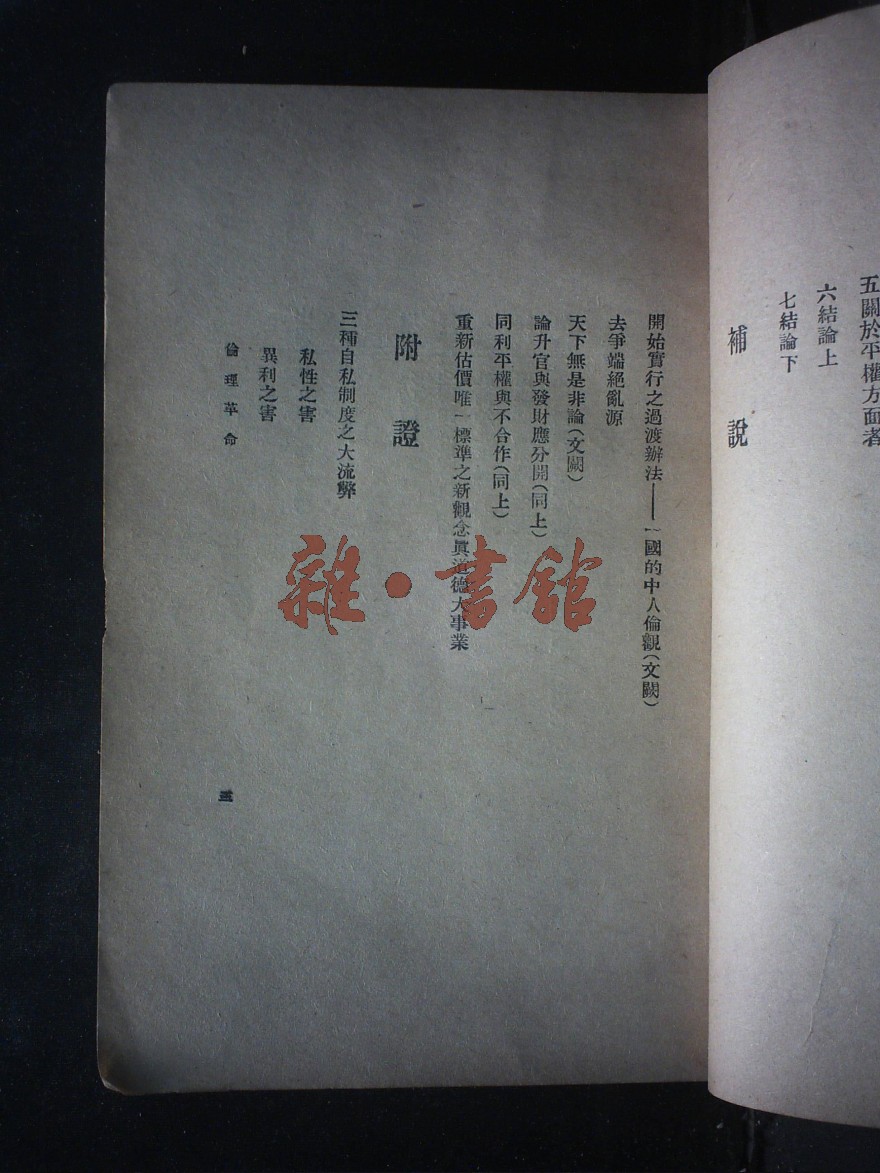 五關於平權方面者
六結論上
七結論下
補說
開始實行之過渡辦法——一國的中人倫觀(文闕)
去爭端絕亂源
天下無是非論(文闕)
論升官與發財應分開(同上)
同利平權與不合作(同上)
重新估價唯一標準之新觀念眞道德大事業
附證
三種自私制度之大流弊
私性之害
異利之害
倫理革命
三
雜·書館